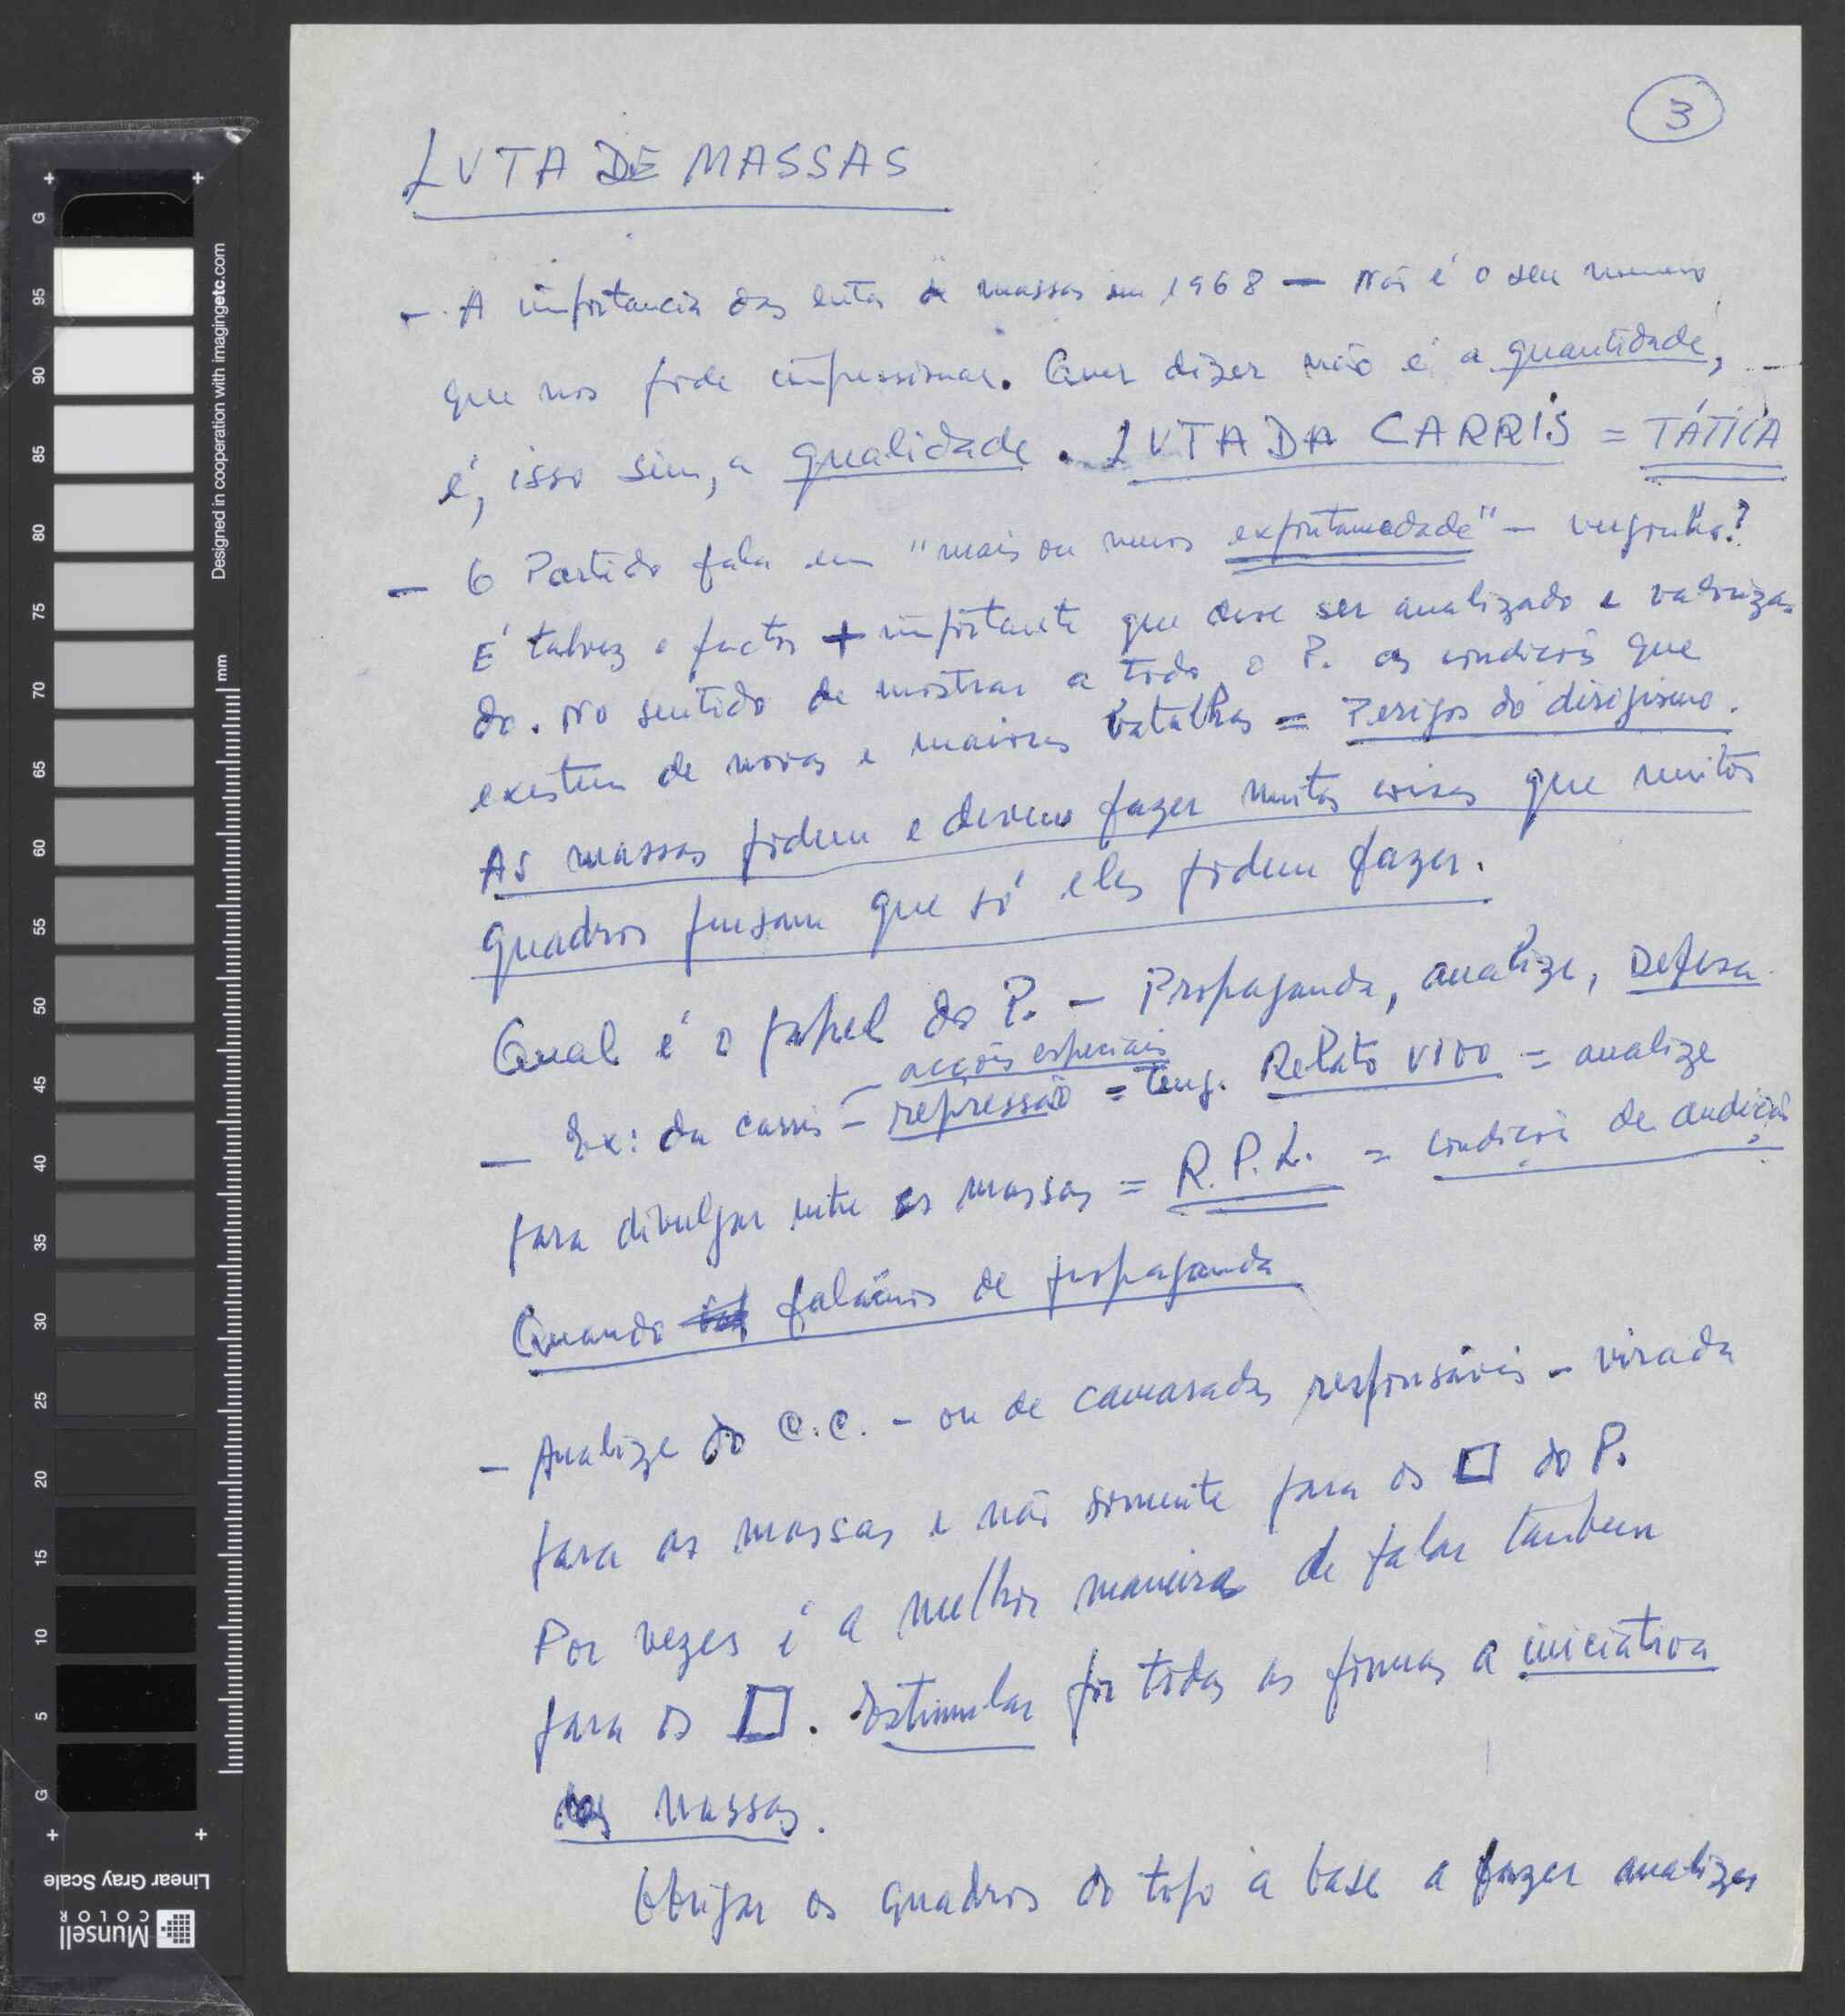 3
LUTA DE MASSAS
- A importancia das lutas de massas em 1968 - Não é o seu numero
que nos pode impressionar. Quer dizer não é a quantidade,
é, isso sim, a qualidade. LUTA DA CARRIS = TÁTICA
- O Partido fala em "mais ou menos expontaneadade" - vergonha?
É talvez o factor + importante que deve ser analizado e valoriza-
do. No sentido de mostrar a todo o P. as condicois que
existem de novas e maiores batalhas = Perigos do dirigismo.
As massas podem e devem fazer muitas coisas que muitos
quadros pensam que só eles podem fazer.
Qual é o papel do P. - Propaganda, analize, Defesa
acções especiais
- Ex: da carris - repressão = Relato vivo = analize
para divulgar entre as massas = R.P.L. = condicois de audicois
Quando falamos de propaganda
- Analize do C.C. - ou de camaradas responsáveis - virada
para as massas e não somente para os □ do P.
Por vezes é a melhor maneira de falar tambem
para os □. Estimular por todas as formas a iniciativa
das massas.
Obrigar os quadros do topo á base a fazer analizes
Designed in cooperation with imagingetc.com
mm
G 95 90 85 80 75 70 65 60 55 50 45 40 35 30 25 20 15 10 5 G
Linear Gray Scale
Munsell
COLOR